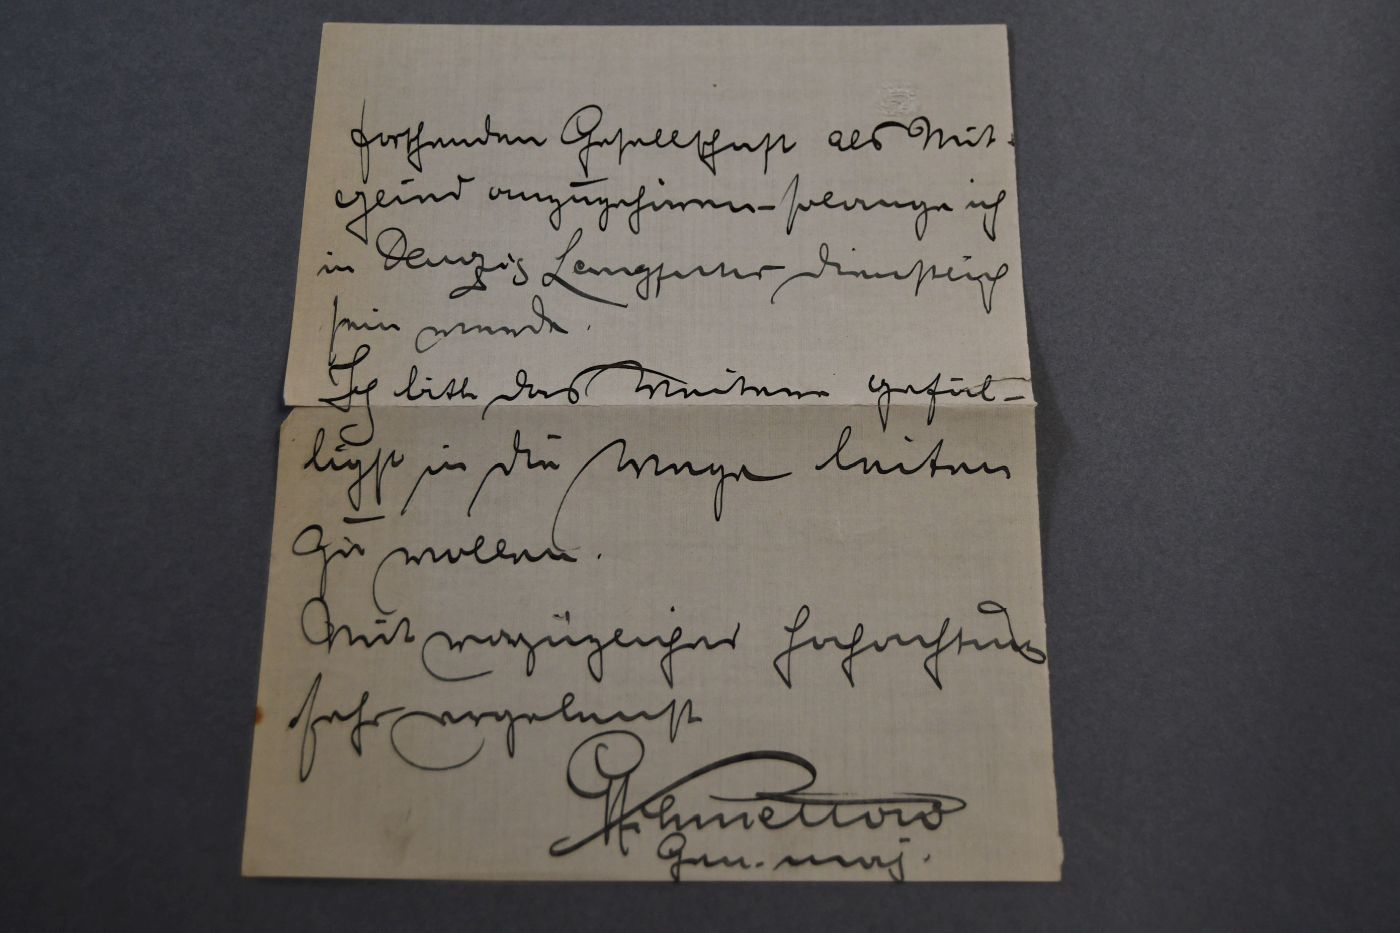 forschenden Gesellschaft als Mit-
glied anzugehören – solange ich
in Danzig Langfuhr dienstlich
sein werde.
Ich bitte das Weitere gefäl-
ligst in die Wege leiten
zu wollen.
Mit vorzüglicher Hochachtung
sehr ergebenst
Gen. maj.